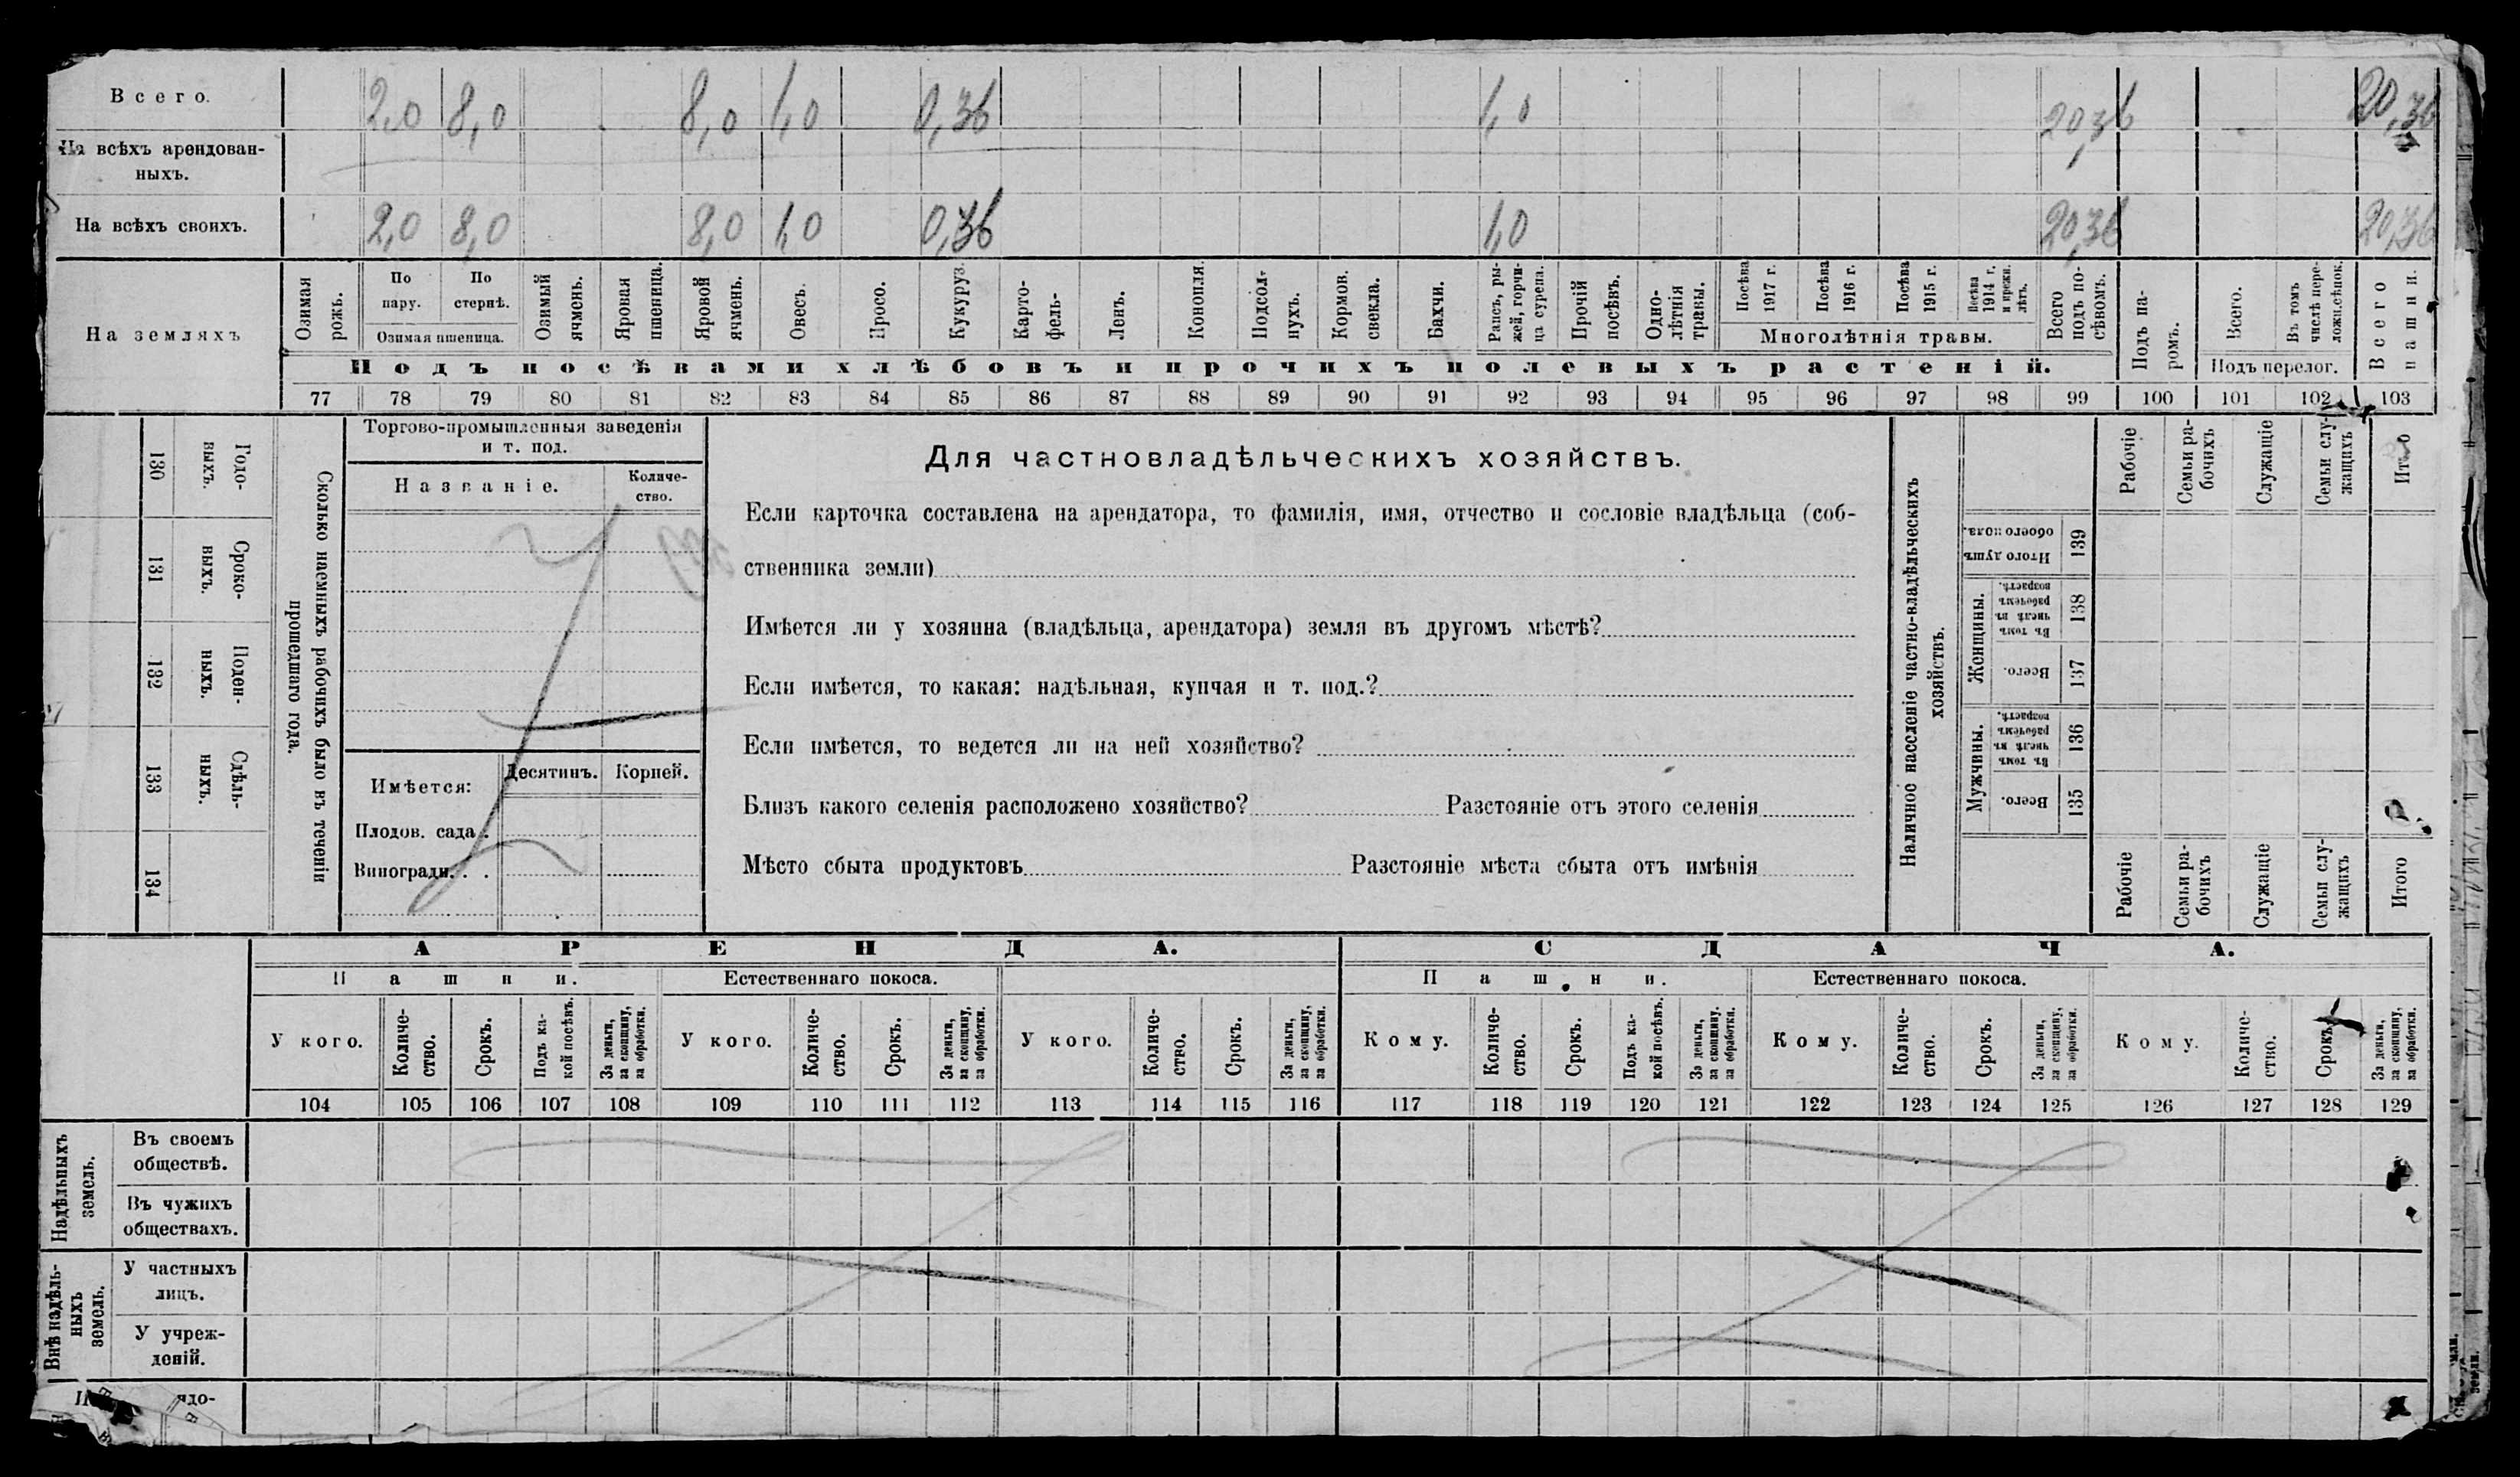 Всего. 2,0 8,0 8,0 1,0 0,36 1,0 20,36 20,36
На всѣхъ арендован-
ныхъ.
На всѣхъ своихъ. 2,0 8,0 8,0 1,0 0,36 1,0 20,36 20,36
На земляхъ
Озимая рожь.
По пару.
По стернѣ.
Озимая пшеница.
Озимый ячмень.
Яровая пшеница.
Яровой ячмень.
Овесъ.
Просо.
Кукуруз.
Карто-
фель-
Ленъ.
Конопля.
Подсол-
нухъ.
Кормов. свекла.
Бахчи.
Рапсъ, ры-
жей, горчи-
ца сурепа.
Прочій посѣвъ.
Одно-
лѣтнія травы.
Посѣва 1917 г.
Посѣва 1916 г.
Посѣва 1915 г.
Посѣва 1914 г. и прежн. лѣтъ.
Многолѣтнія травы.
Всего подъ по-
сѣвомъ.
Подъ па-
ромъ.
Всего.
Въ томъ числѣ пере-
ложн.сѣнок.
Подъ перелог.
Всего пашни.
Подъ посѣвами хлѣбовъ и прочихъ полевыхъ растеній.
77 78 79 80 81 82 83 84 85 86 87 88 89 90 91 92 93 94 95 96 97 98 99 100 101 102 103
130 Годо-
выхъ.
131 Сроко-
выхъ.
132 Поден-
ныхъ.
133 Сдѣль-
ныхъ.
134
Сколько наемныхъ рабочихъ было въ теченіи
прошедшаго года.
Торгово-промышленныя заведенія
и т. под.
Названіе.
Количе-
ство.
Имѣется:
Десятинъ. Корней.
Плодов. сада.
Виноградн. . .
Для частновладѣльческихъ хозяйствъ.
Если карточка составлена на арендатора, то фамилія, имя, отчество и сословіе владѣльца (соб-
ственника земли)
Имѣется ли у хозяина (владѣльца, арендатора) земля въ другомъ мѣстѣ?
Если имѣется, то какая: надѣльная, купчая и т. под.?
Если имѣется, то ведется ли на ней хозяйство?
Близъ какого селенія расположено хозяйство? Разстояніе отъ этого селенія
Мѣсто сбыта продуктовъ Разстояніе мѣста сбыта отъ имѣнія
Наличное населеніе частно-владѣльческихъ
хозяйствъ.
Рабочіе
Семьи ра-
бочихъ
Служащіе
Семьи слу-
жащихъ
Итого
Итого душъ обоего пола. 139
Женщины.
Въ томъ числѣ въ рабочемъ возрастѣ. 138
Всего. 137
Мужчины.
Въ томъ числѣ въ рабочемъ возрастѣ. 136
Всего. 135
Рабочіе
Семьи ра-
бочихъ
Служащіе
Семьи слу-
жащихъ
Итого
АРЕНДА. СДАЧА.
Пашни. Естественнаго покоса. Пашни. Естественнаго покоса.
У кого.
Количе-
ство.
Срокъ.
Подъ ка-
кой посѣвъ.
За деньги, за скопщину, за обработки.
У кого.
Количе-
ство.
Срокъ.
За деньги, за скопщину, за обработки.
У кого.
Количе-
ство.
Срокъ.
За деньги, за скопщину, за обработки.
Кому.
Количе-
ство.
Срокъ.
Подъ ка-
кой посѣвъ.
За деньги, за скопщину, за обработки.
Кому.
Количе-
ство.
Срокъ.
За деньги, за скопщину, за обработки.
Кому.
Количе-
ство.
Срокъ.
За деньги, за скопщину, за обработки.
104 105 106 107 108 109 110 111 112 113 114 115 116 117 118 119 120 121 122 123 124 125 126 127 128 129
Надѣльныхъ
земель.
Въ своемъ
обществѣ.
Въ чужихъ
обществахъ.
Внѣ надѣль-
ныхъ
земель.
У частныхъ
лицъ.
У учреж-
деній.